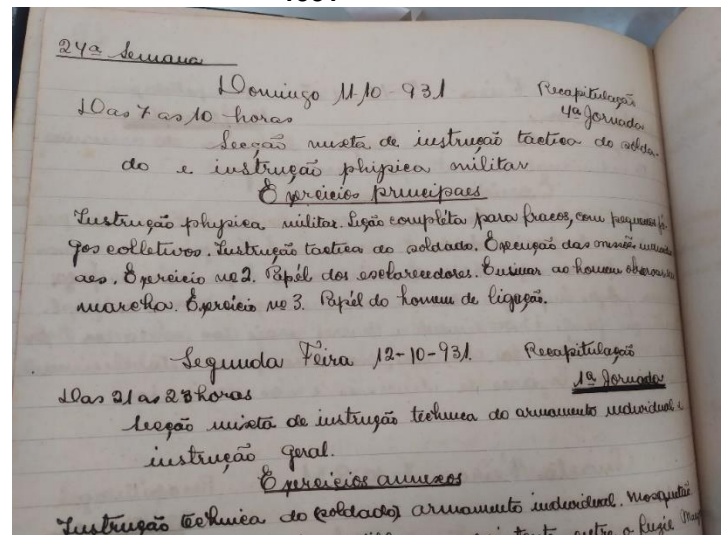 24ª Semana
Domingo 11-10-931 Recapitulação
Das 7 as 10 horas 4ª Jornada
Secção mixta de instrução tactica do solda-
do e instrução phipica militar
Exercicios principaes
Instrução phypica militar. Lição compléta para fracos, com pequenos jo-
gos colletivos. Instrução tactica do soldado. Execução das missões individu
aes. Exercicio nº 2. Papél dos esclarecedores. Ensinar ao homem observar em
marcha. Exercício nº 3. Papél do homem de ligação.
Segunda Feira 12-10-931. Recapitulação
1ª Jornada
Das 21 as 23 horas
Secção mixta de instrução technica do armamento individual e
instrução geral.
Exercicios annexos
Instrução technica do (soldado) armamento individual. Mosquetão
entre o fuzil